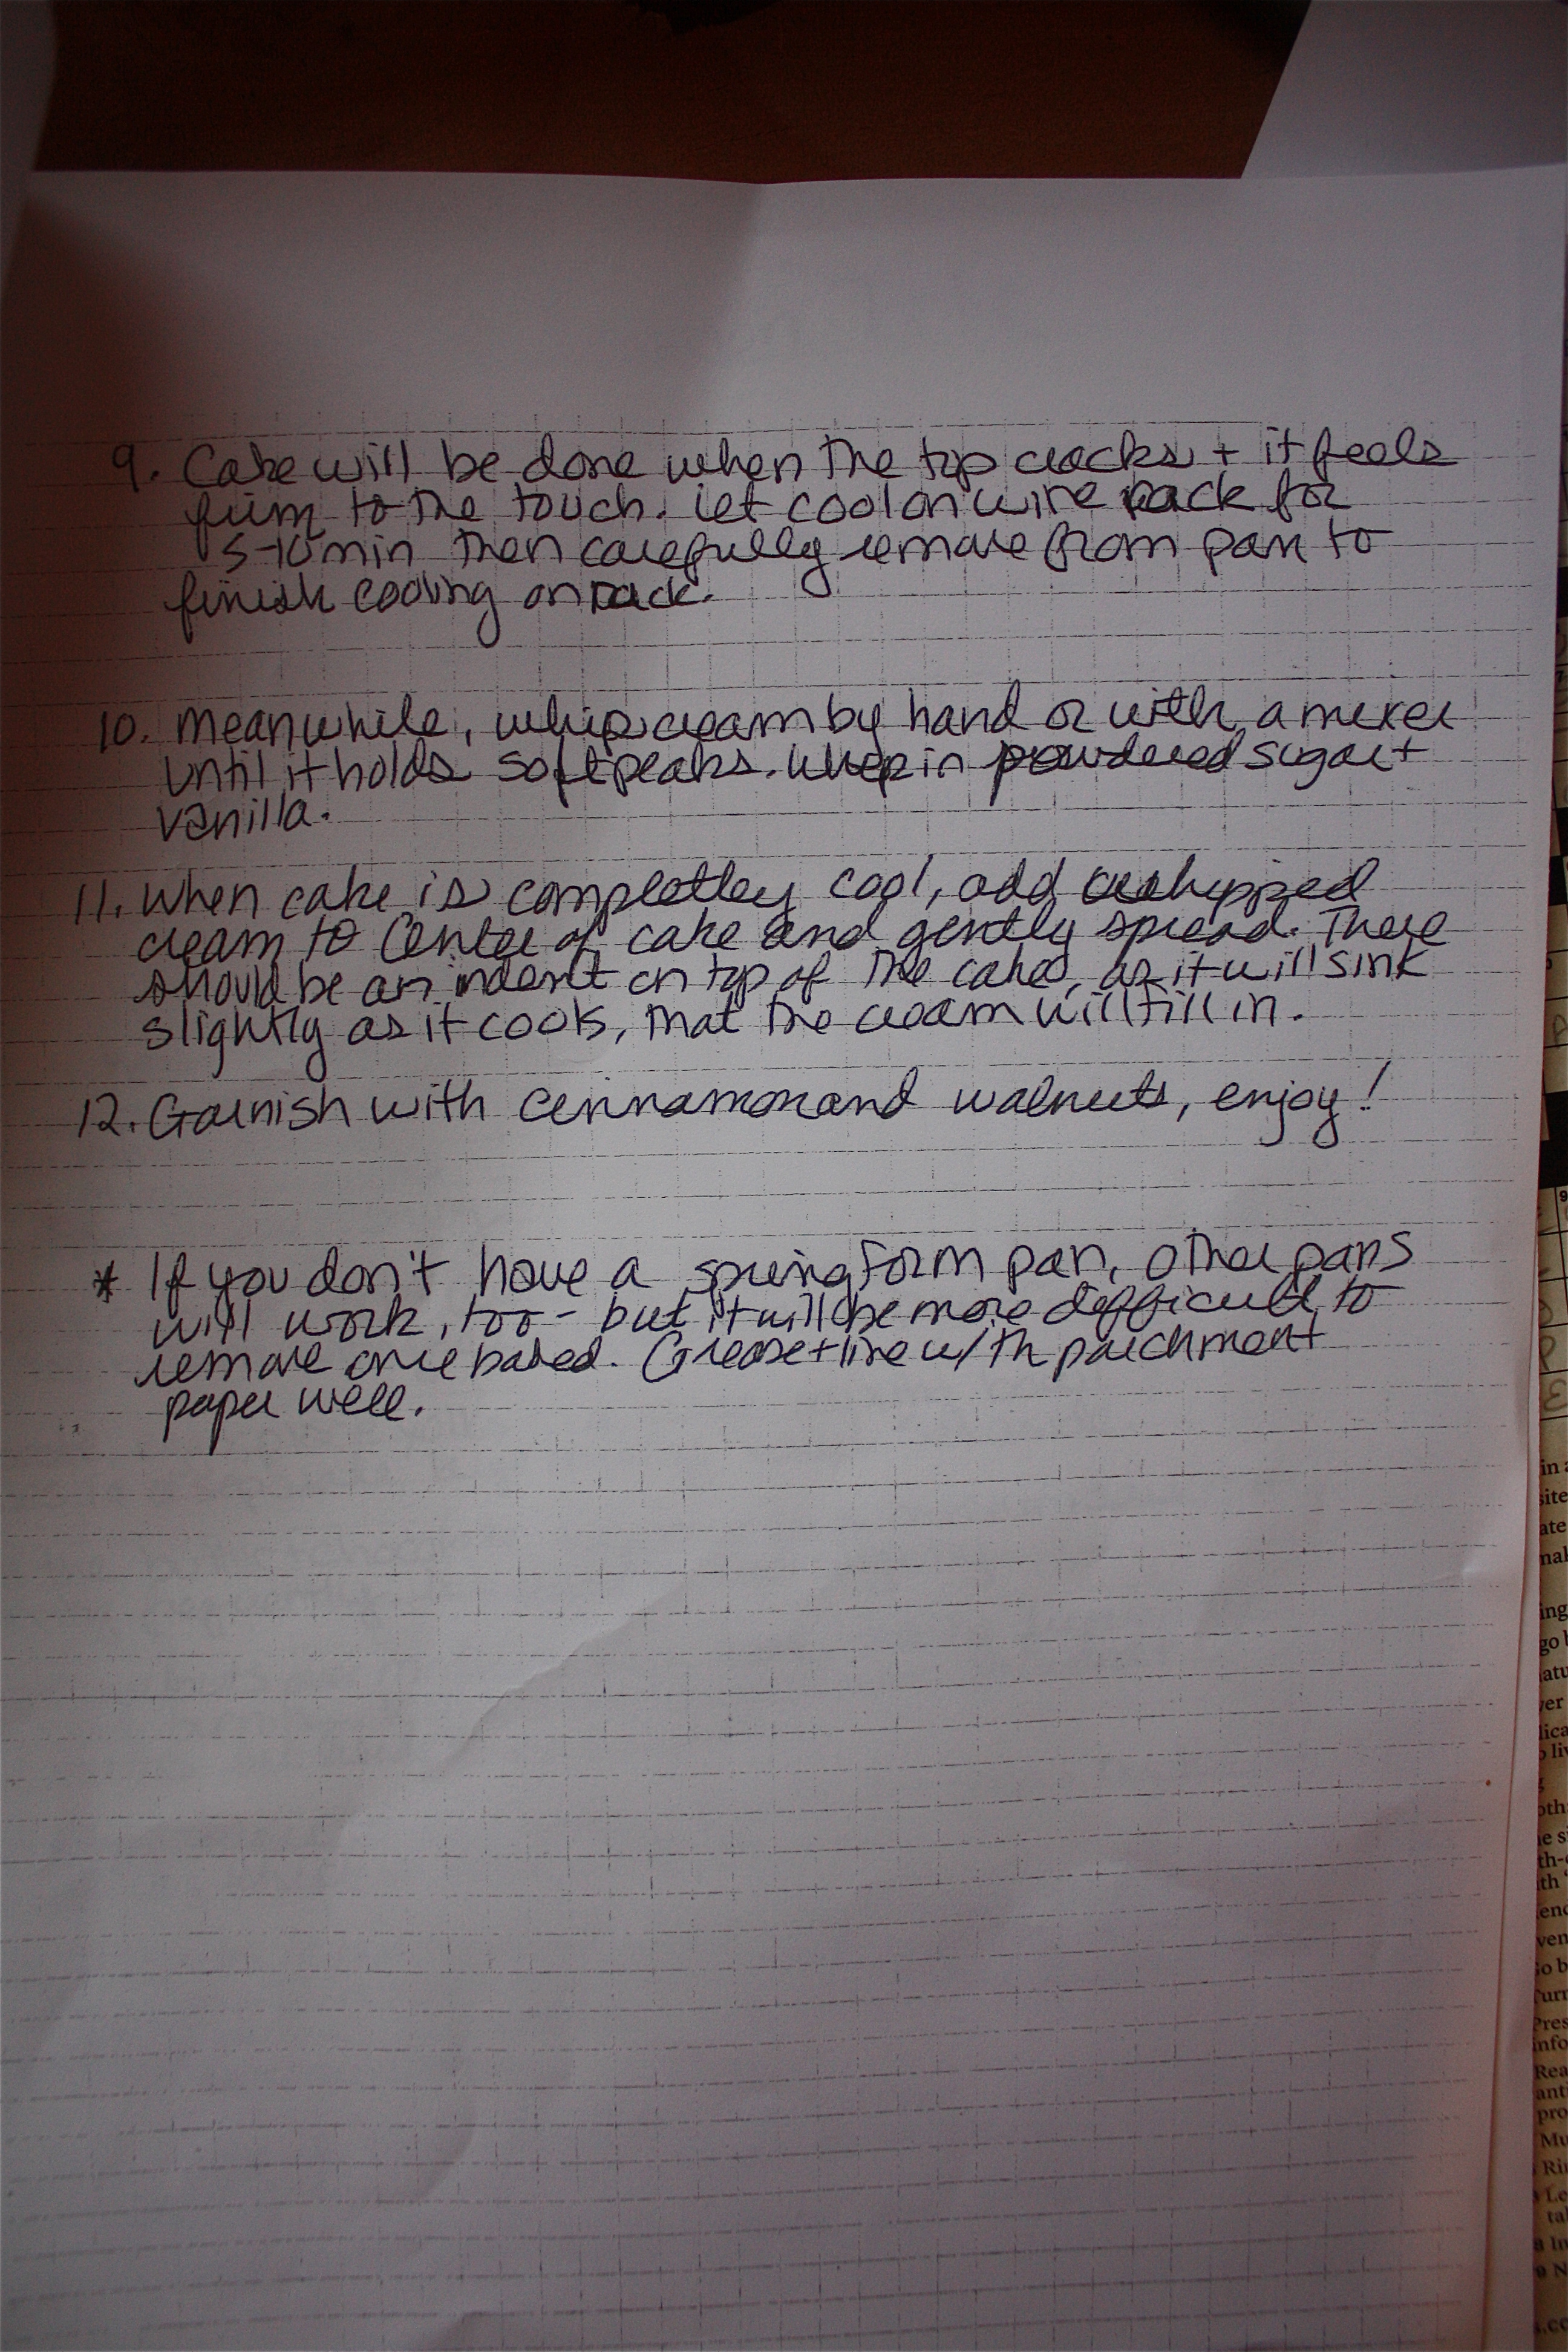 9. Cake will be done when the top cracks + it feels
firm to the touch. Let cool on wire rack for
5-10 min then carefully remove from pan to
finish cooling on rack.
10. Meanwhile, whip cream by hand or with a mixer
until it holds soft peaks. Whip in powdered sugar +
vanilla.
11. When cake is completley cool, add whipped
cream to center of cake and gently spread. There
should be an indent on top of the cake, as it will sink
slightly as it cools, that the cream will fill in.
12. Garnish with cinnamon and walnuts, enjoy!
* If you don't have a springform pan, other pans
will work, too - but it will be more difficult to
remove once baked. Grease + line w/ th parchment
paper well.